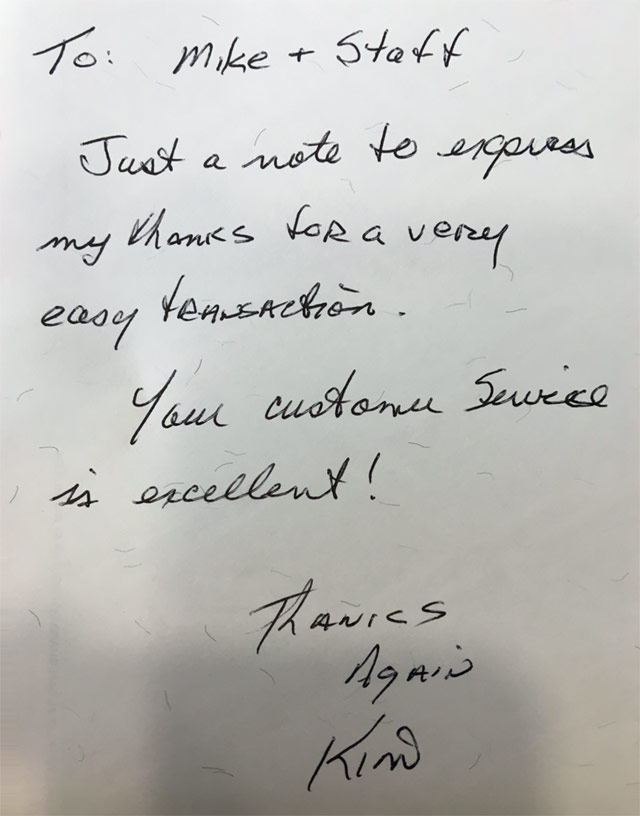 To: Mike + Staff
Just a note to express
my thanks for a very
easy transaction.
Your customer Service
is excellent!
Thanks
Again
Kim